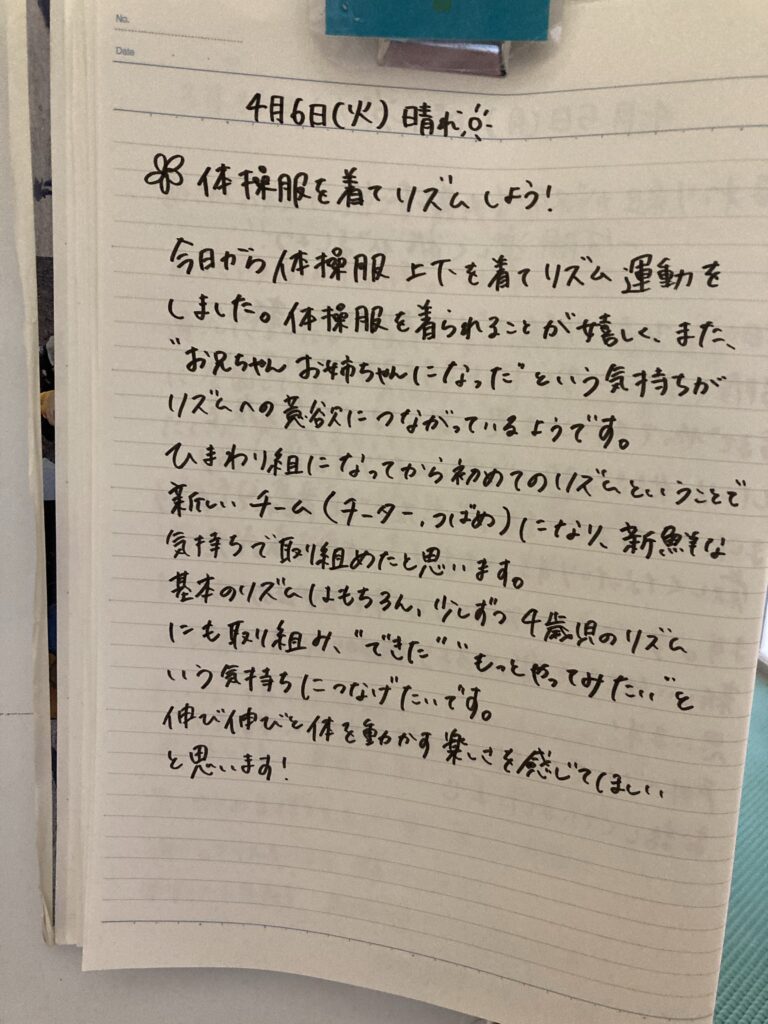 No.
Date
4月6日(火) 晴れ
体操服を着てリズムしよう!
今日から体操服 上下を着てリズム運動を
しました。体操服を着られることが嬉しく、また、
"お兄ちゃんお姉ちゃんになった"という気持ちが
リズムへの意欲につながっているようです。
ひまわり組になってから初めてのリズムということで
新しいチーム(チーター、つばめ)になり、新鮮な
気持ちで取り組めたと思います。
基本のリズムはもちろん、少しずつ4歳児のリズム
にも取り組み、"できた""もっとやってみたい"と
いう気持ちにつなげたいです。
伸び伸びと体を動かす楽しさを感じてほしい
と思います!